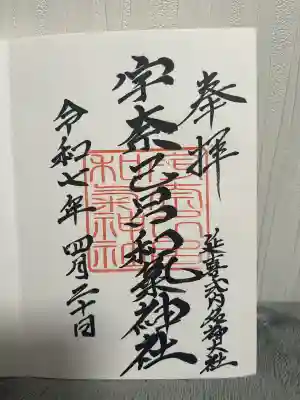 奉拝
延喜式内名神大社
宇奈己呂和気神社
令和七年 四月二十日